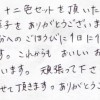 十二色セットを頂いた
手をありがとうございま
分へのごほうびに1日に1
す。これからも おいしい お
います。頑張って下さ
せて頂きます。ありがとうご